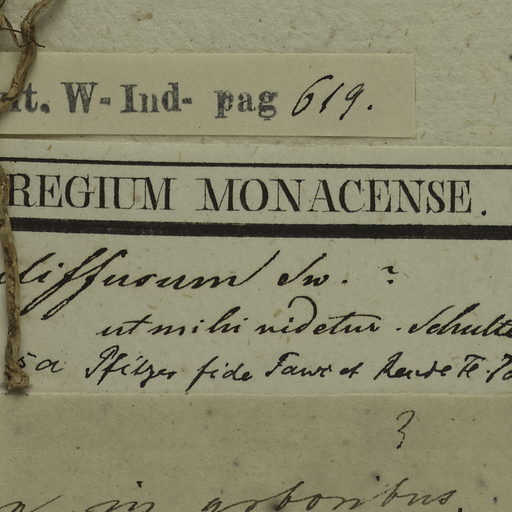 it. W-Ind- pag 619.
REGIUM MONACENSE.
diffusum Sw. ?
ut mihi videtur. Schult
5a Pfitzer fide Fawc et Rendle
3
in arboribus.